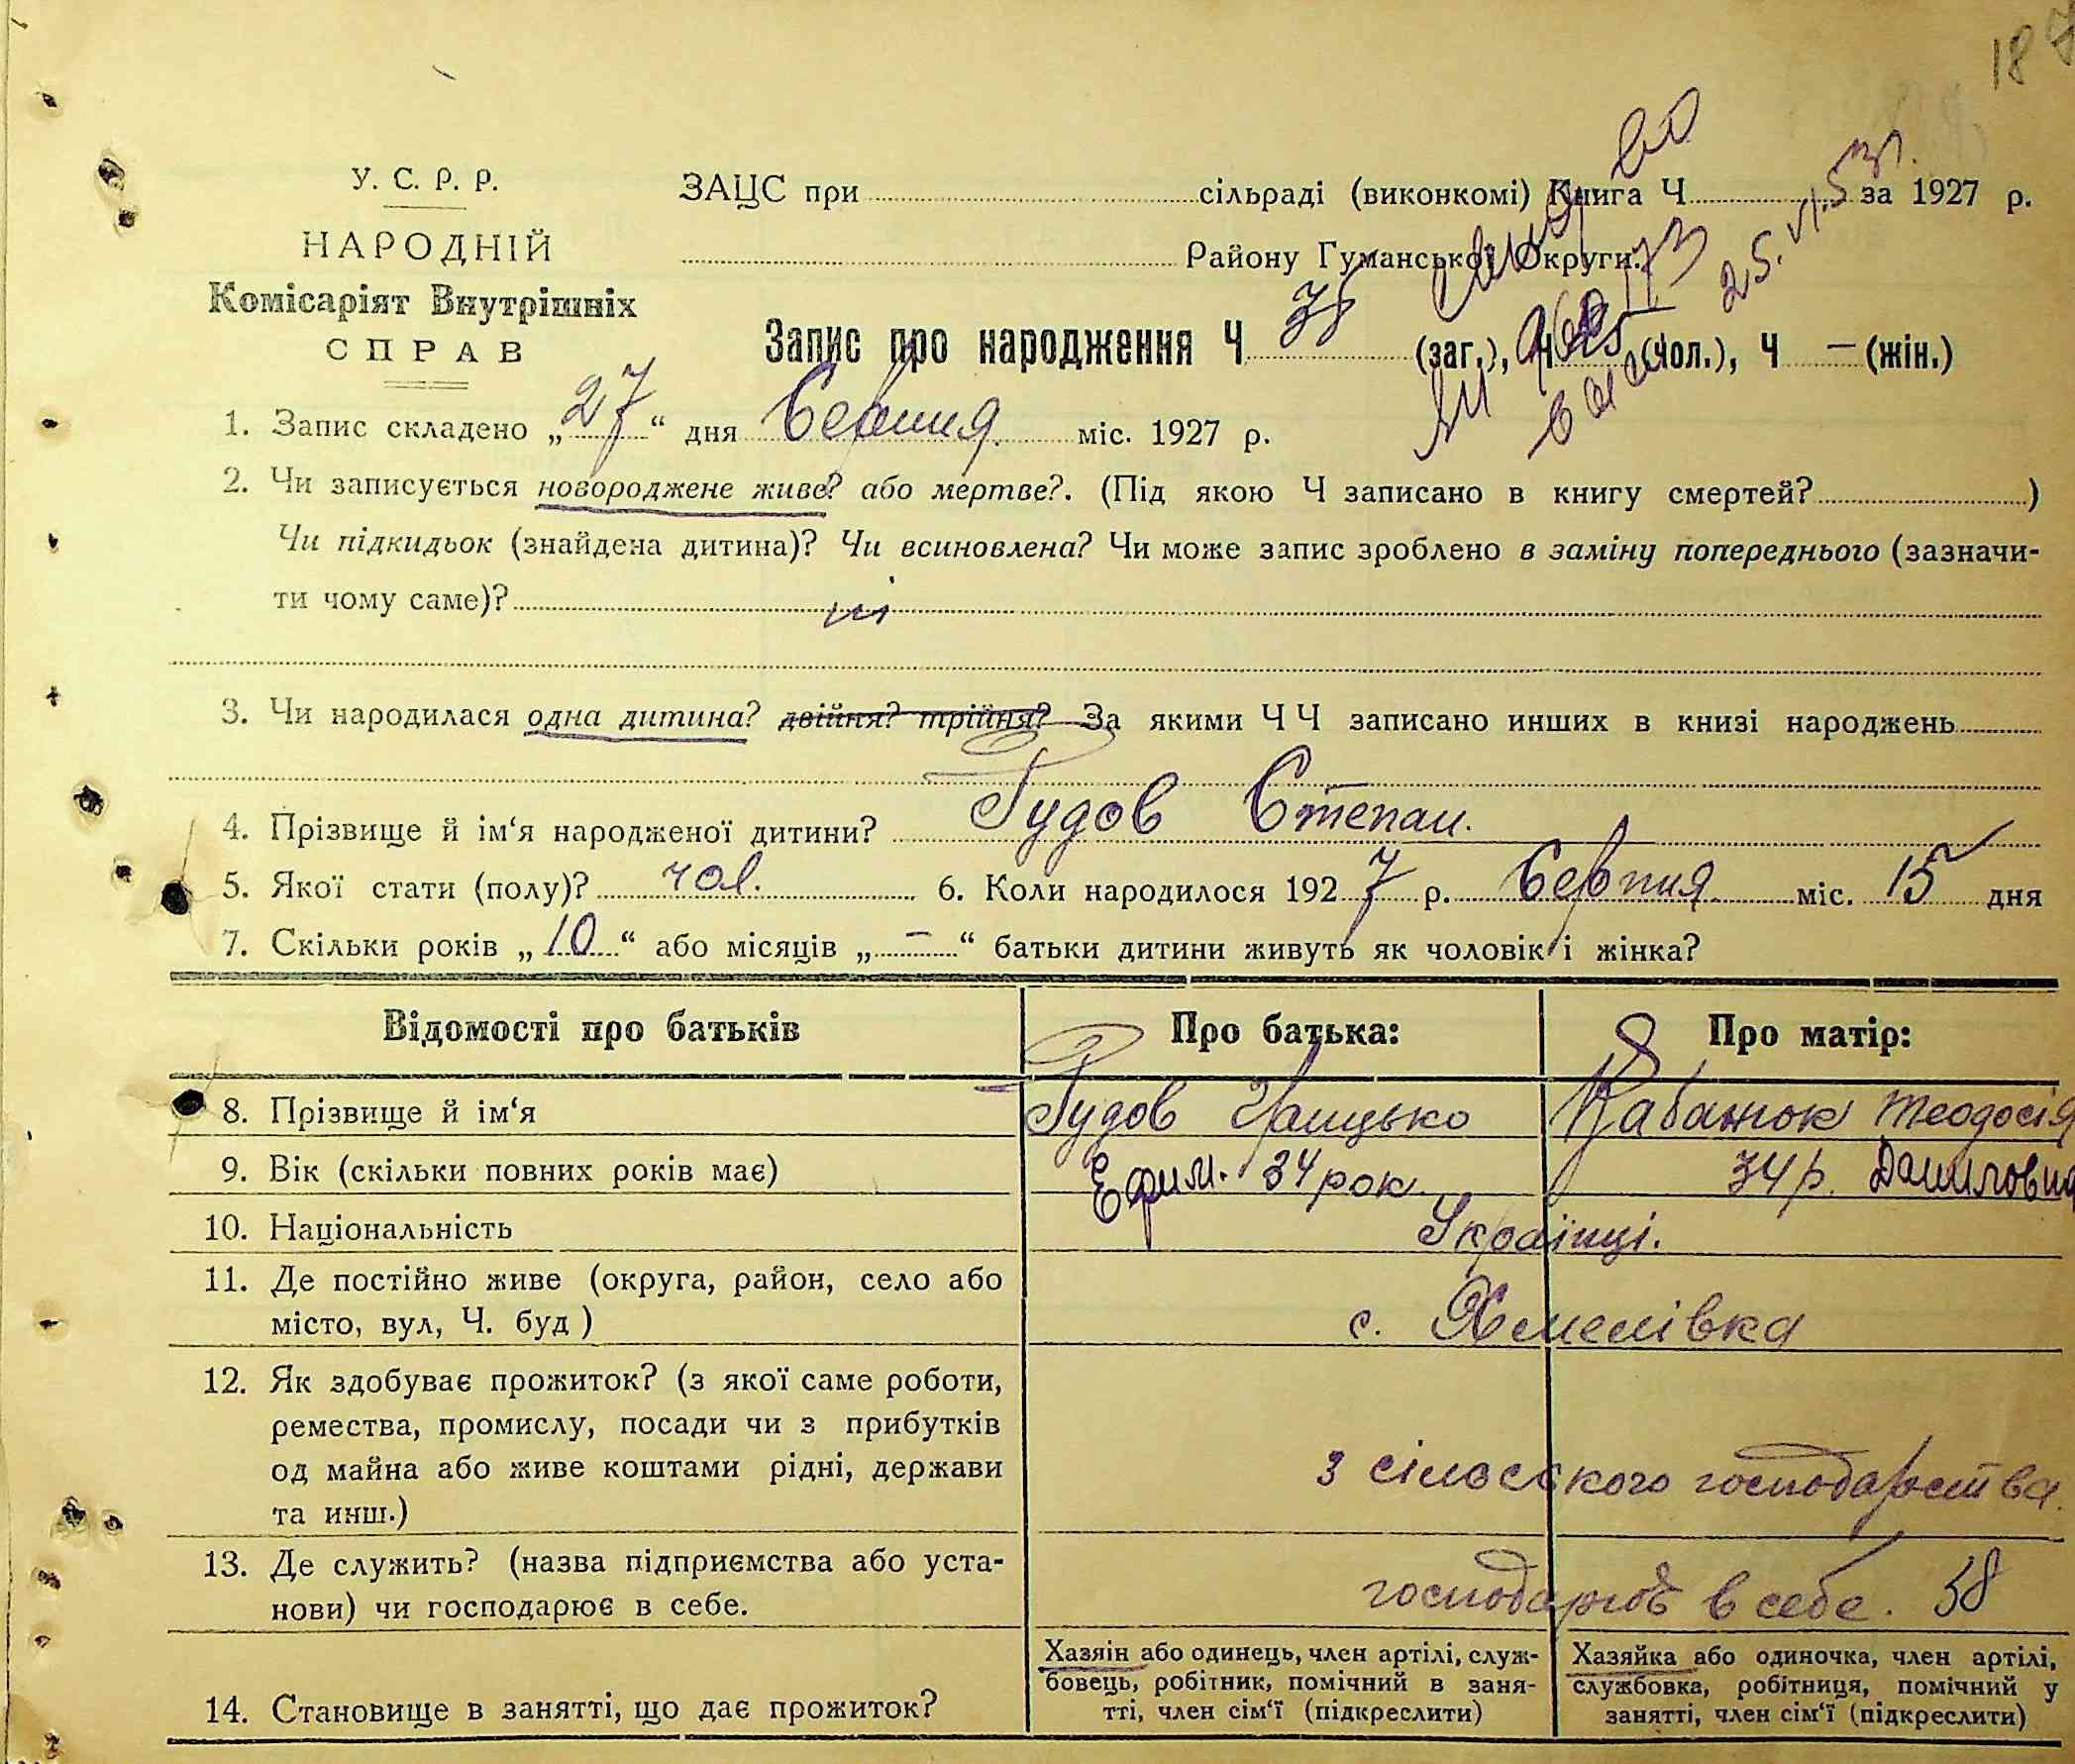 187
У. С. Р. Р.
НАРОДНІЙ
Комісаріят Внутрішніх
СПРАВ
ЗАЦС при сільраді (виконкомі) Книга Ч за 1927 р.
Району Гуманської Округи.
25.VI.53п.
Запис про народження Ч 38 (заг.), Ч (чол.), Ч — (жін.)
1. Запис складено „27“ дня Серпня міс. 1927 р.
2. Чи записується новороджене живе? або мертве?. (Під якою Ч записано в книгу смертей? )
Чи підкидьок (знайдена дитина)? Чи всиновлена? Чи може запис зроблено в заміну попереднього (зазначи-
ти чому саме)? ні
3. Чи народилася одна дитина? двійня? трійня? За якими Ч Ч записано инших в книзі народжень
4. Прізвище й ім‘я народженої дитини? Гудов Степан.
5. Якої стати (полу)? чол. 6. Коли народилося 1927 р. Серпня міс. 15 дня
7. Скільки років „10“ або місяців „—“ батьки дитини живуть як чоловік і жінка?
Відомості про батьків Про батька: Про матір:
8. Прізвище й ім‘я Гудов Грицько Кабанюк Теодосія
9. Вік (скільки повних років має) Ефим. 34 рок 34 р. Даниловна
10. Національність Українці.
11. Де постійно живе (округа, район, село або
місто, вул, Ч. буд ) с. Хмелівка
12. Як здобуває прожиток? (з якої саме роботи,
ремества, промислу, посади чи з прибутків
од майна або живе коштами рідні, держави
та инш.) з сільського господарства.
13. Де служить? (назва підприємства або уста-
нови) чи господарює в себе. господарює в себе. 38
14. Становище в занятті, що дає прожиток?
Хазяін або одинець, член артілі, служ-
бовець, робітник, помічний в заня-
тті, член сім‘ї (підкреслити)
Хазяйка або одиночка, член артілі,
службовка, робітниця, помічний у
занятті, член сім‘ї (підкреслити)